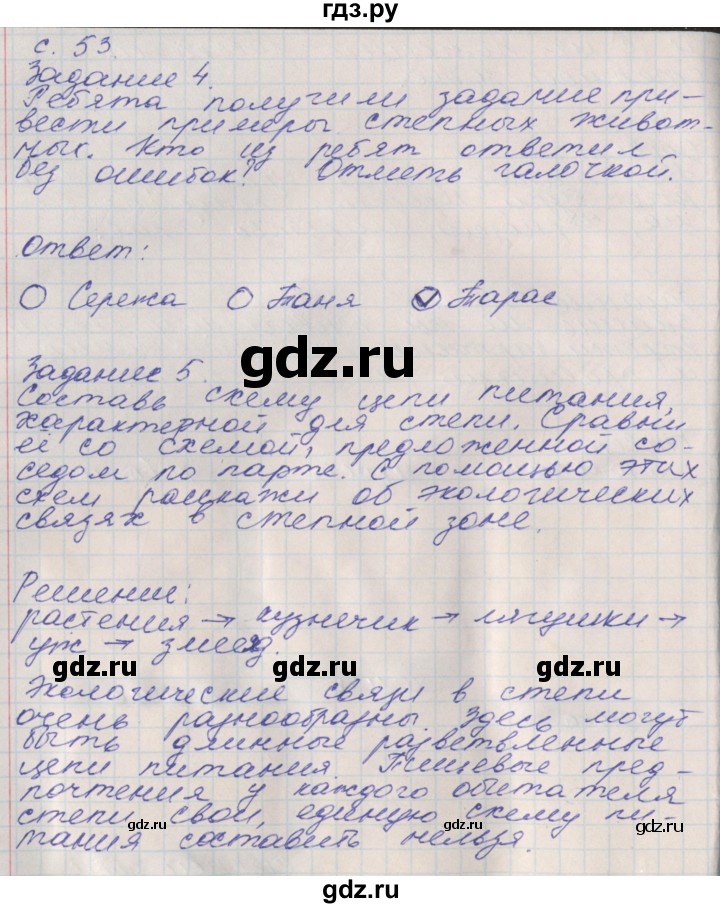 гдз.ру
с. 53.
Задание 4.
Ребята получили задание при-
вести примеры степных живот-
ных. Кто из ребят ответил
без ошибок? Отметь галочкой.
Ответ:
Сережа Таня Тарас
gdz.ru
Задание 5.
Составь схему цепи питания,
характерной для степи. Сравни
её со схемой, предложенной со-
седом по парте. С помощью этих
схем расскажи об экологических
связях в степной зоне.
Решение:
растения → кузнечик → лягушки →
уж → змееяд.
gdz.ru gdz.ru gdz.ru
Экологические связи в степи
очень разнообразны. Здесь могут
быть длинные разветвленные
цепи питания. Пищевые пред-
почтения у каждого обитателя
степи свои, единую схему пи-
тания составить нельзя.
gdz.ru gdz.ru gdz.ru
gdz.ru